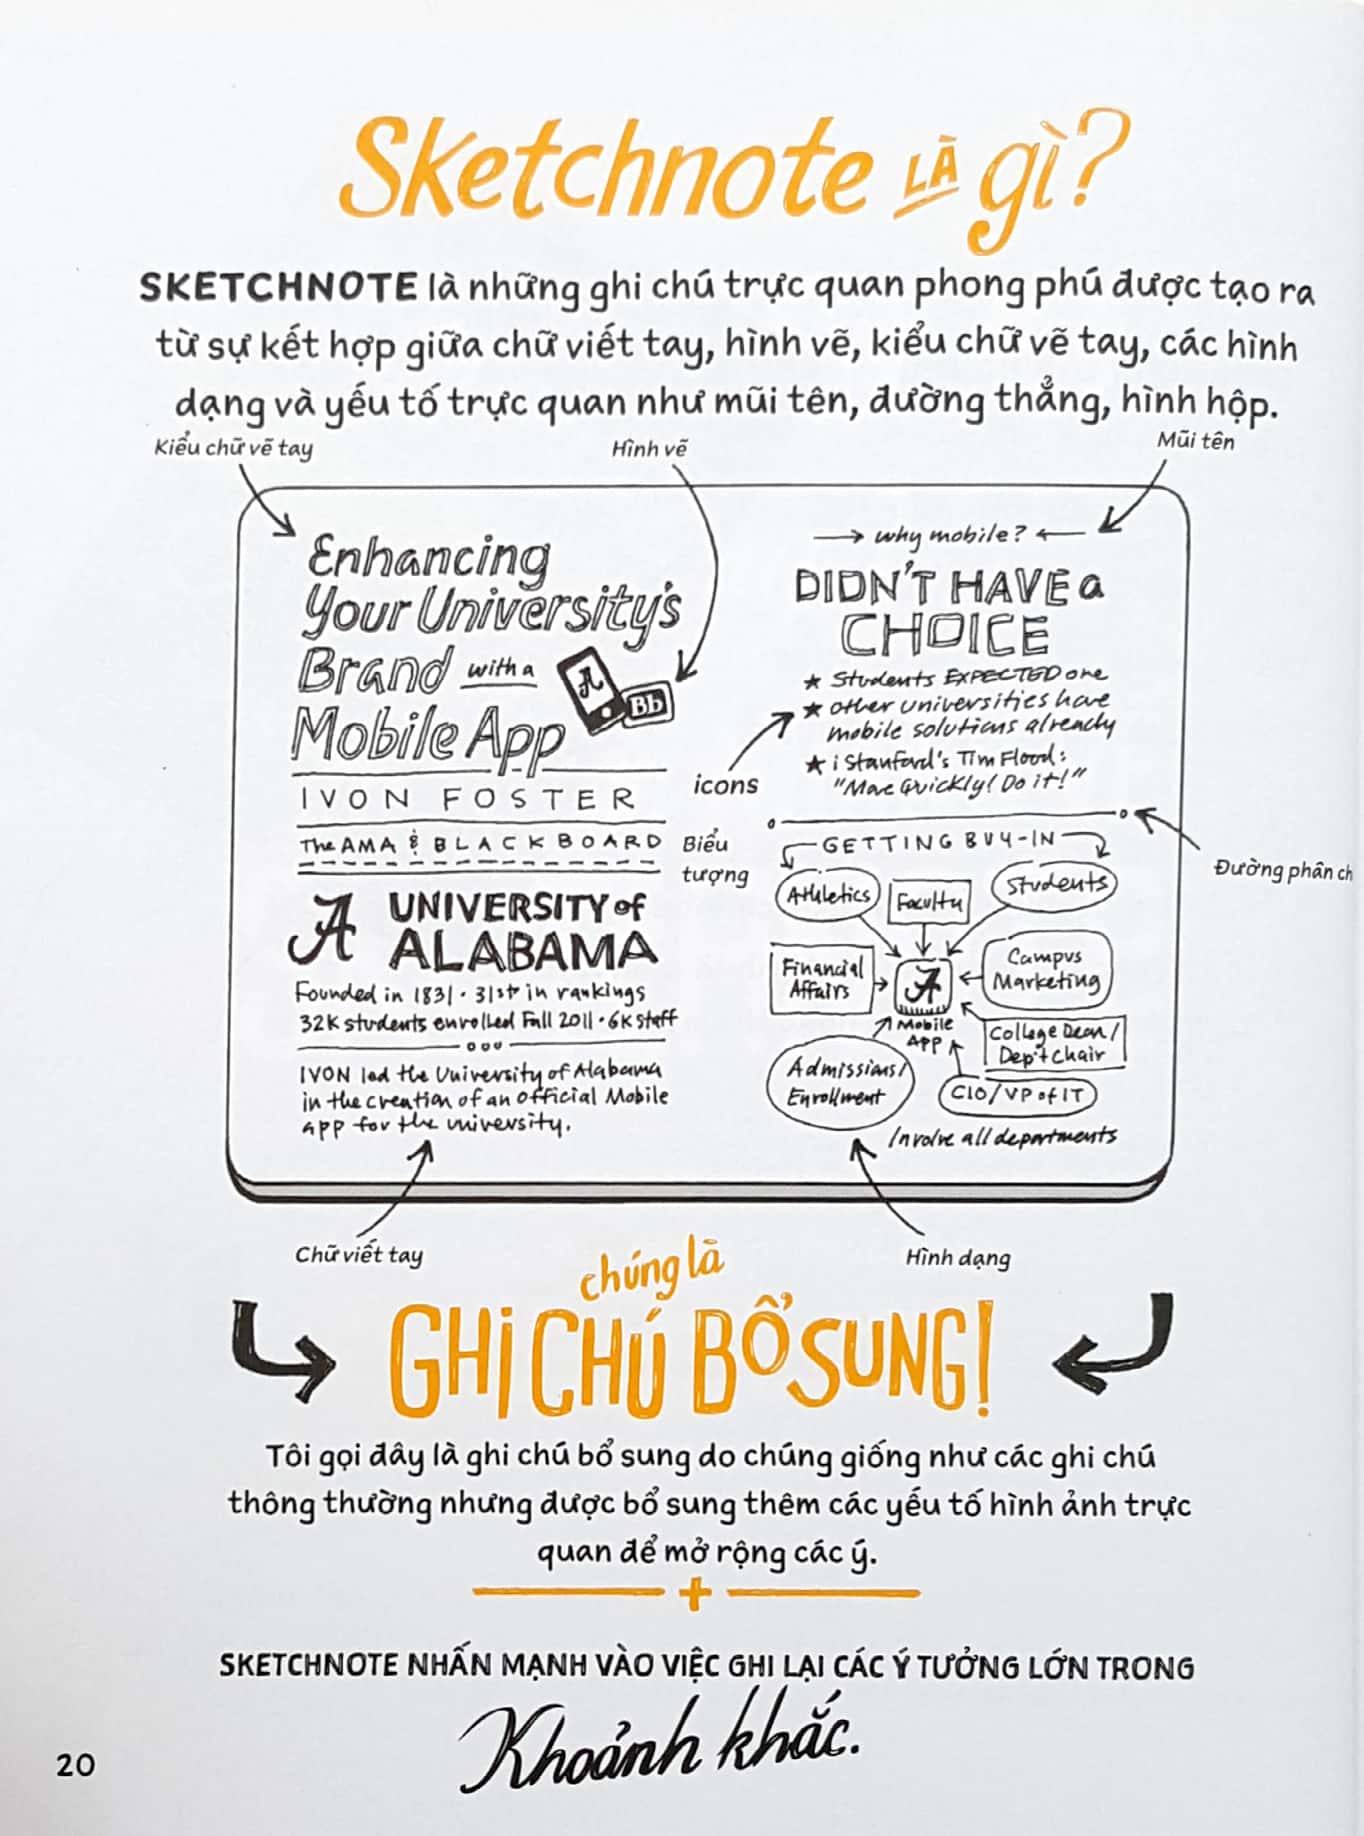 Sketchnote LÀ gì?
SKETCHNOTE là những ghi chú trực quan phong phú được tạo ra
từ sự kết hợp giữa chữ viết tay, hình vẽ, kiểu chữ vẽ tay, các hình
dạng và yếu tố trực quan như mũi tên, đường thẳng, hình hộp.
Kiểu chữ vẽ tay
Hình vẽ
Mũi tên
Enhancing
Your University's
Brand with a
Mobile App
A
Bb
IVON FOSTER
The AMA & BLACKBOARD
A UNIVERSITY of
ALABAMA
Founded in 1831 · 31st in rankings
32K students enrolled Fall 2011 · 6K staff
IVON led the University of Alabama
in the creation of an official Mobile
app for the university.
why mobile?
DIDN'T HAVE a
CHOICE
★ Students EXPECTED one
★ other universities have
mobile solutions already
★ i Stanford's Tim Flood:
"Move Quickly! Do it!"
icons
Biểu
tượng
Đường phân ch
GETTING BUY-IN
Athletics
Faculty
Students
Financial
Affairs
A
Campus
Marketing
Mobile
App
College Dean/
Dep't Chair
Admissions/
Enrollment
CIO/VP of IT
Involve all departments
Chữ viết tay
Hình dạng
chúng là
GHI CHÚ BỔ SUNG!
Tôi gọi đây là ghi chú bổ sung do chúng giống như các ghi chú
thông thường nhưng được bổ sung thêm các yếu tố hình ảnh trực
quan để mở rộng các ý.
SKETCHNOTE NHẤN MẠNH VÀO VIỆC GHI LẠI CÁC Ý TƯỞNG LỚN TRONG
Khoảnh khắc.
20